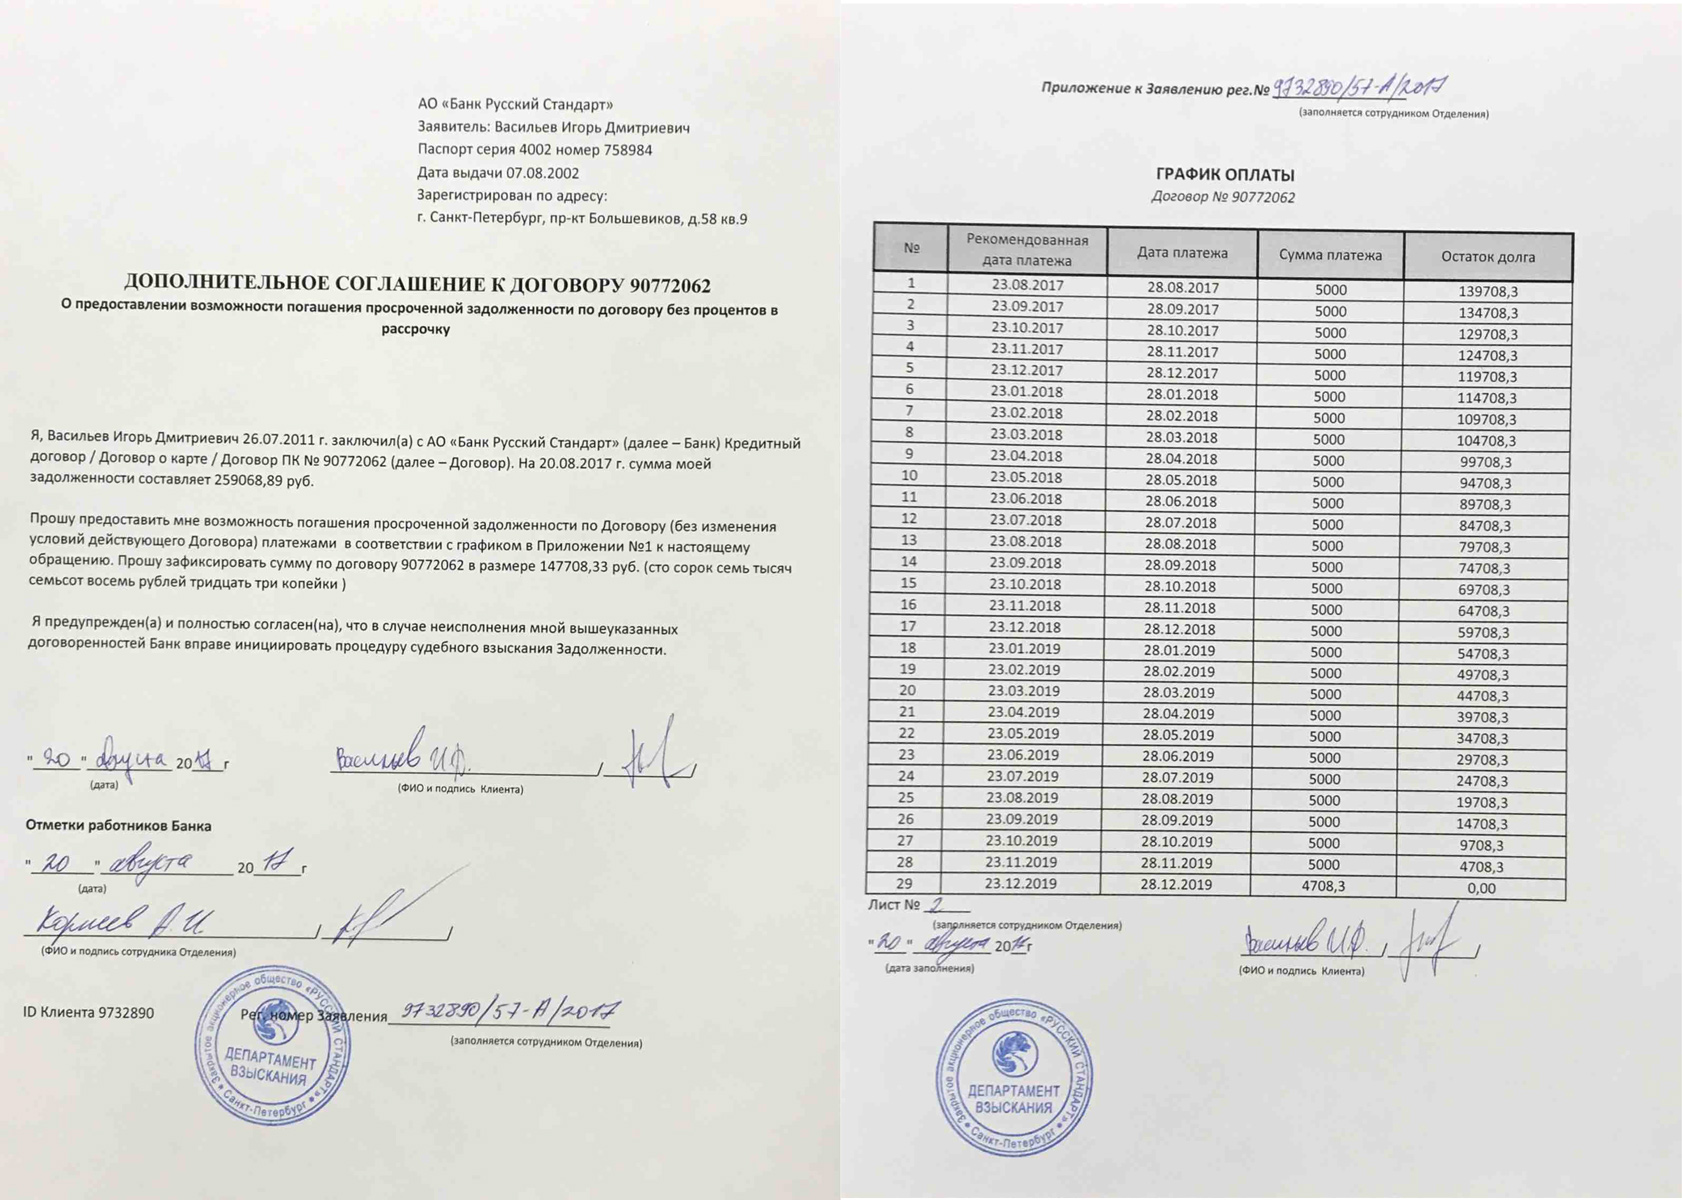 АО «Банк Русский Стандарт»
Заявитель: Васильев Игорь Дмитриевич
Паспорт серия 4002 номер 758984
Дата выдачи 07.08.2002
Зарегистрирован по адресу:
г. Санкт-Петербург, пр-кт Большевиков, д.58 кв.9
ДОПОЛНИТЕЛЬНОЕ СОГЛАШЕНИЕ К ДОГОВОРУ 90772062
О предоставлении возможности погашения просроченной задолженности по договору без процентов в
рассрочку
Я, Васильев Игорь Дмитриевич 26.07.2011 г. заключил(а) с АО «Банк Русский Стандарт» (далее – Банк) Кредитный
договор / Договор о карте / Договор ПК № 90772062 (далее – Договор). На 20.08.2017 г. сумма моей
задолженности составляет 259068,89 руб.
Прошу предоставить мне возможность погашения просроченной задолженности по Договору (без изменения
условий действующего Договора) платежами в соответствии с графиком в Приложении №1 к настоящему
обращению. Прошу зафиксировать сумму по договору 90772062 в размере 147708,33 руб. (сто сорок семь тысяч
семьсот восемь рублей тридцать три копейки )
Я предупрежден(а) и полностью согласен(на), что в случае неисполнения мной вышеуказанных
договоренностей Банк вправе инициировать процедуру судебного взыскания Задолженности.
"20" августа 2017г
Васильев И.Д. / /
(дата)
(ФИО и подпись Клиента)
Отметки работников Банка
"20" августа 2017г
(дата)
Корнеев А.И / /
(ФИО и подпись сотрудника Отделения)
ID Клиента 9732890
Рег. номер Заявления 9732890/57-А/2017
(заполняется сотрудником Отделения)
Закрытое акционерное общество «РУССКИЙ СТАНДАРТ»
ДЕПАРТАМЕНТ
ВЗЫСКАНИЯ
Санкт-Петербург
Приложение к Заявлению рег.№ 9732890/57-А/2017
(заполняется сотрудником Отделения)
ГРАФИК ОПЛАТЫ
Договор № 90772062
№ Рекомендованная дата платежа Дата платежа Сумма платежа Остаток долга
1 23.08.2017 28.08.2017 5000 139708,3
2 23.09.2017 28.09.2017 5000 134708,3
3 23.10.2017 28.10.2017 5000 129708,3
4 23.11.2017 28.11.2017 5000 124708,3
5 23.12.2017 28.12.2017 5000 119708,3
6 23.01.2018 28.01.2018 5000 114708,3
7 23.02.2018 28.02.2018 5000 109708,3
8 23.03.2018 28.03.2018 5000 104708,3
9 23.04.2018 28.04.2018 5000 99708,3
10 23.05.2018 28.05.2018 5000 94708,3
11 23.06.2018 28.06.2018 5000 89708,3
12 23.07.2018 28.07.2018 5000 84708,3
13 23.08.2018 28.08.2018 5000 79708,3
14 23.09.2018 28.09.2018 5000 74708,3
15 23.10.2018 28.10.2018 5000 69708,3
16 23.11.2018 28.11.2018 5000 64708,3
17 23.12.2018 28.12.2018 5000 59708,3
18 23.01.2019 28.01.2019 5000 54708,3
19 23.02.2019 28.02.2019 5000 49708,3
20 23.03.2019 28.03.2019 5000 44708,3
21 23.04.2019 28.04.2019 5000 39708,3
22 23.05.2019 28.05.2019 5000 34708,3
23 23.06.2019 28.06.2019 5000 29708,3
24 23.07.2019 28.07.2019 5000 24708,3
25 23.08.2019 28.08.2019 5000 19708,3
26 23.09.2019 28.09.2019 5000 14708,3
27 23.10.2019 28.10.2019 5000 9708,3
28 23.11.2019 28.11.2019 5000 4708,3
29 23.12.2019 28.12.2019 4708,3 0,00
Лист № 2
(заполняется сотрудником Отделения)
"20" августа 2017г
Васильев И.Д. / /
(дата заполнения)
(ФИО и подпись Клиента)
Закрытое акционерное общество «РУССКИЙ СТАНДАРТ»
ДЕПАРТАМЕНТ
ВЗЫСКАНИЯ
Санкт-Петербург